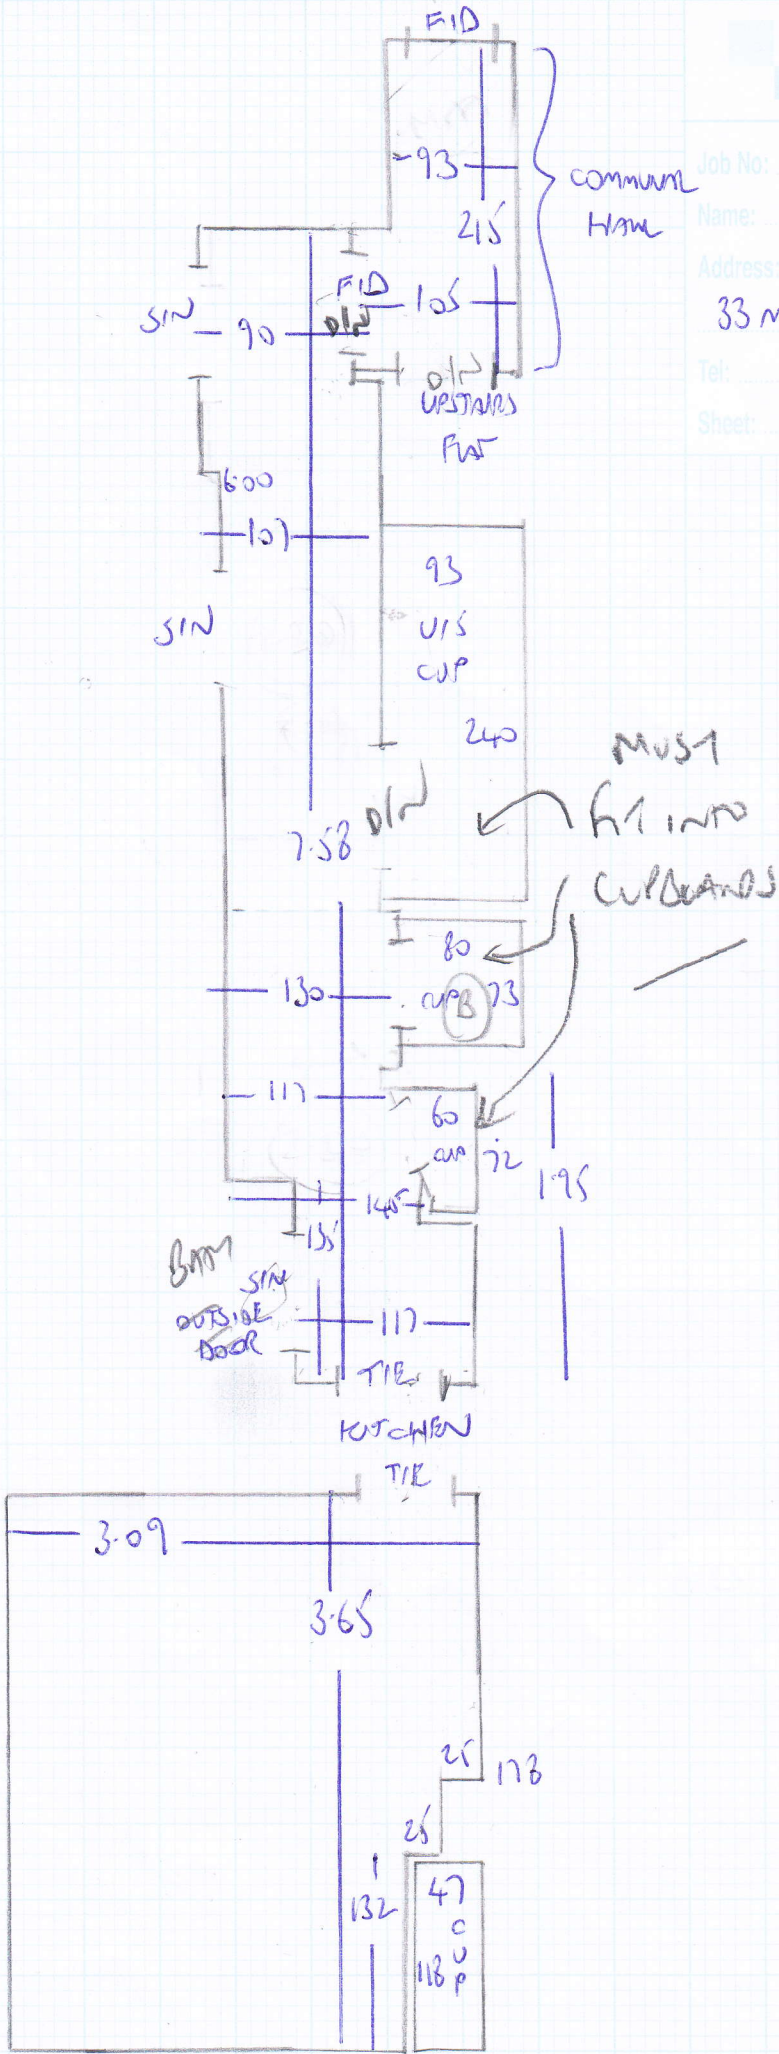 F/D
93
COMMUNAL
HALL
215
Job No:
Name:
Address:
33
Tel:
Sheet:
S/N
90
F/D
D/N
105
D/N
UPSTAIRS
FLAT
600
107
S/N
93
U/S
CUP
240
MUST
FIT INTO
CUPBOARDS
D/N
7.58
80
CUP B 73
130
117
60
CUP 72
1.95
145
135
BATH
S/N
OUTSIDE
DOOR
117
T/E
KITCHEN
T/E
3.09
3.65
25
178
25
132
47
CUP
118